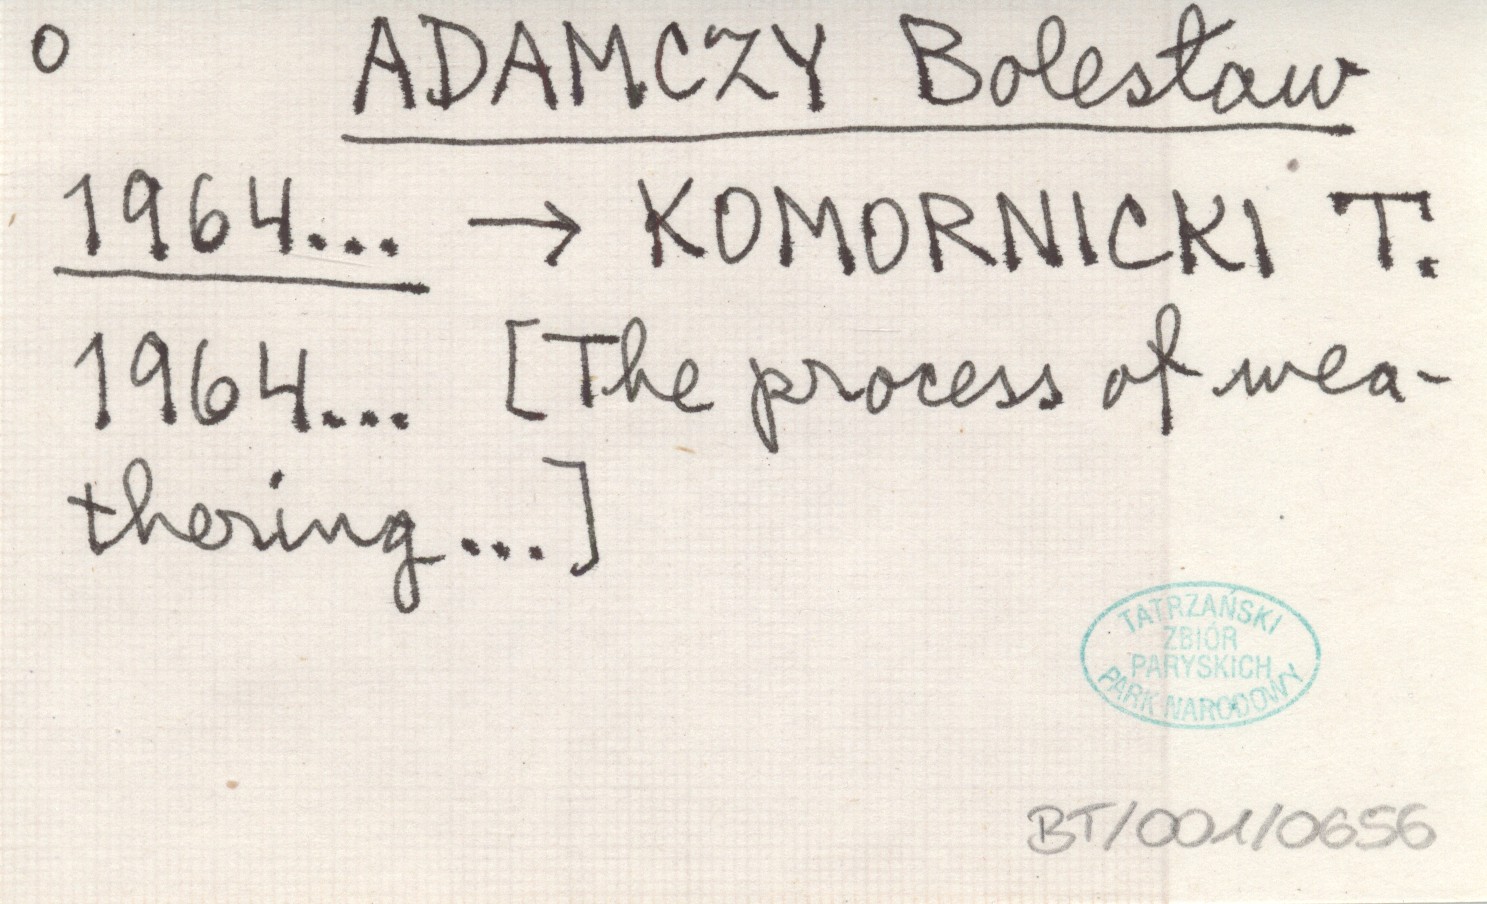 o ADAMCZY Bolesław
1964... → KOMORNICKI T.
1964... [The process of wea-
thering...]
TATRZAŃSKI
ZBIÓR
PARYSKICH
PARK NARODOWY
BT/001/0656